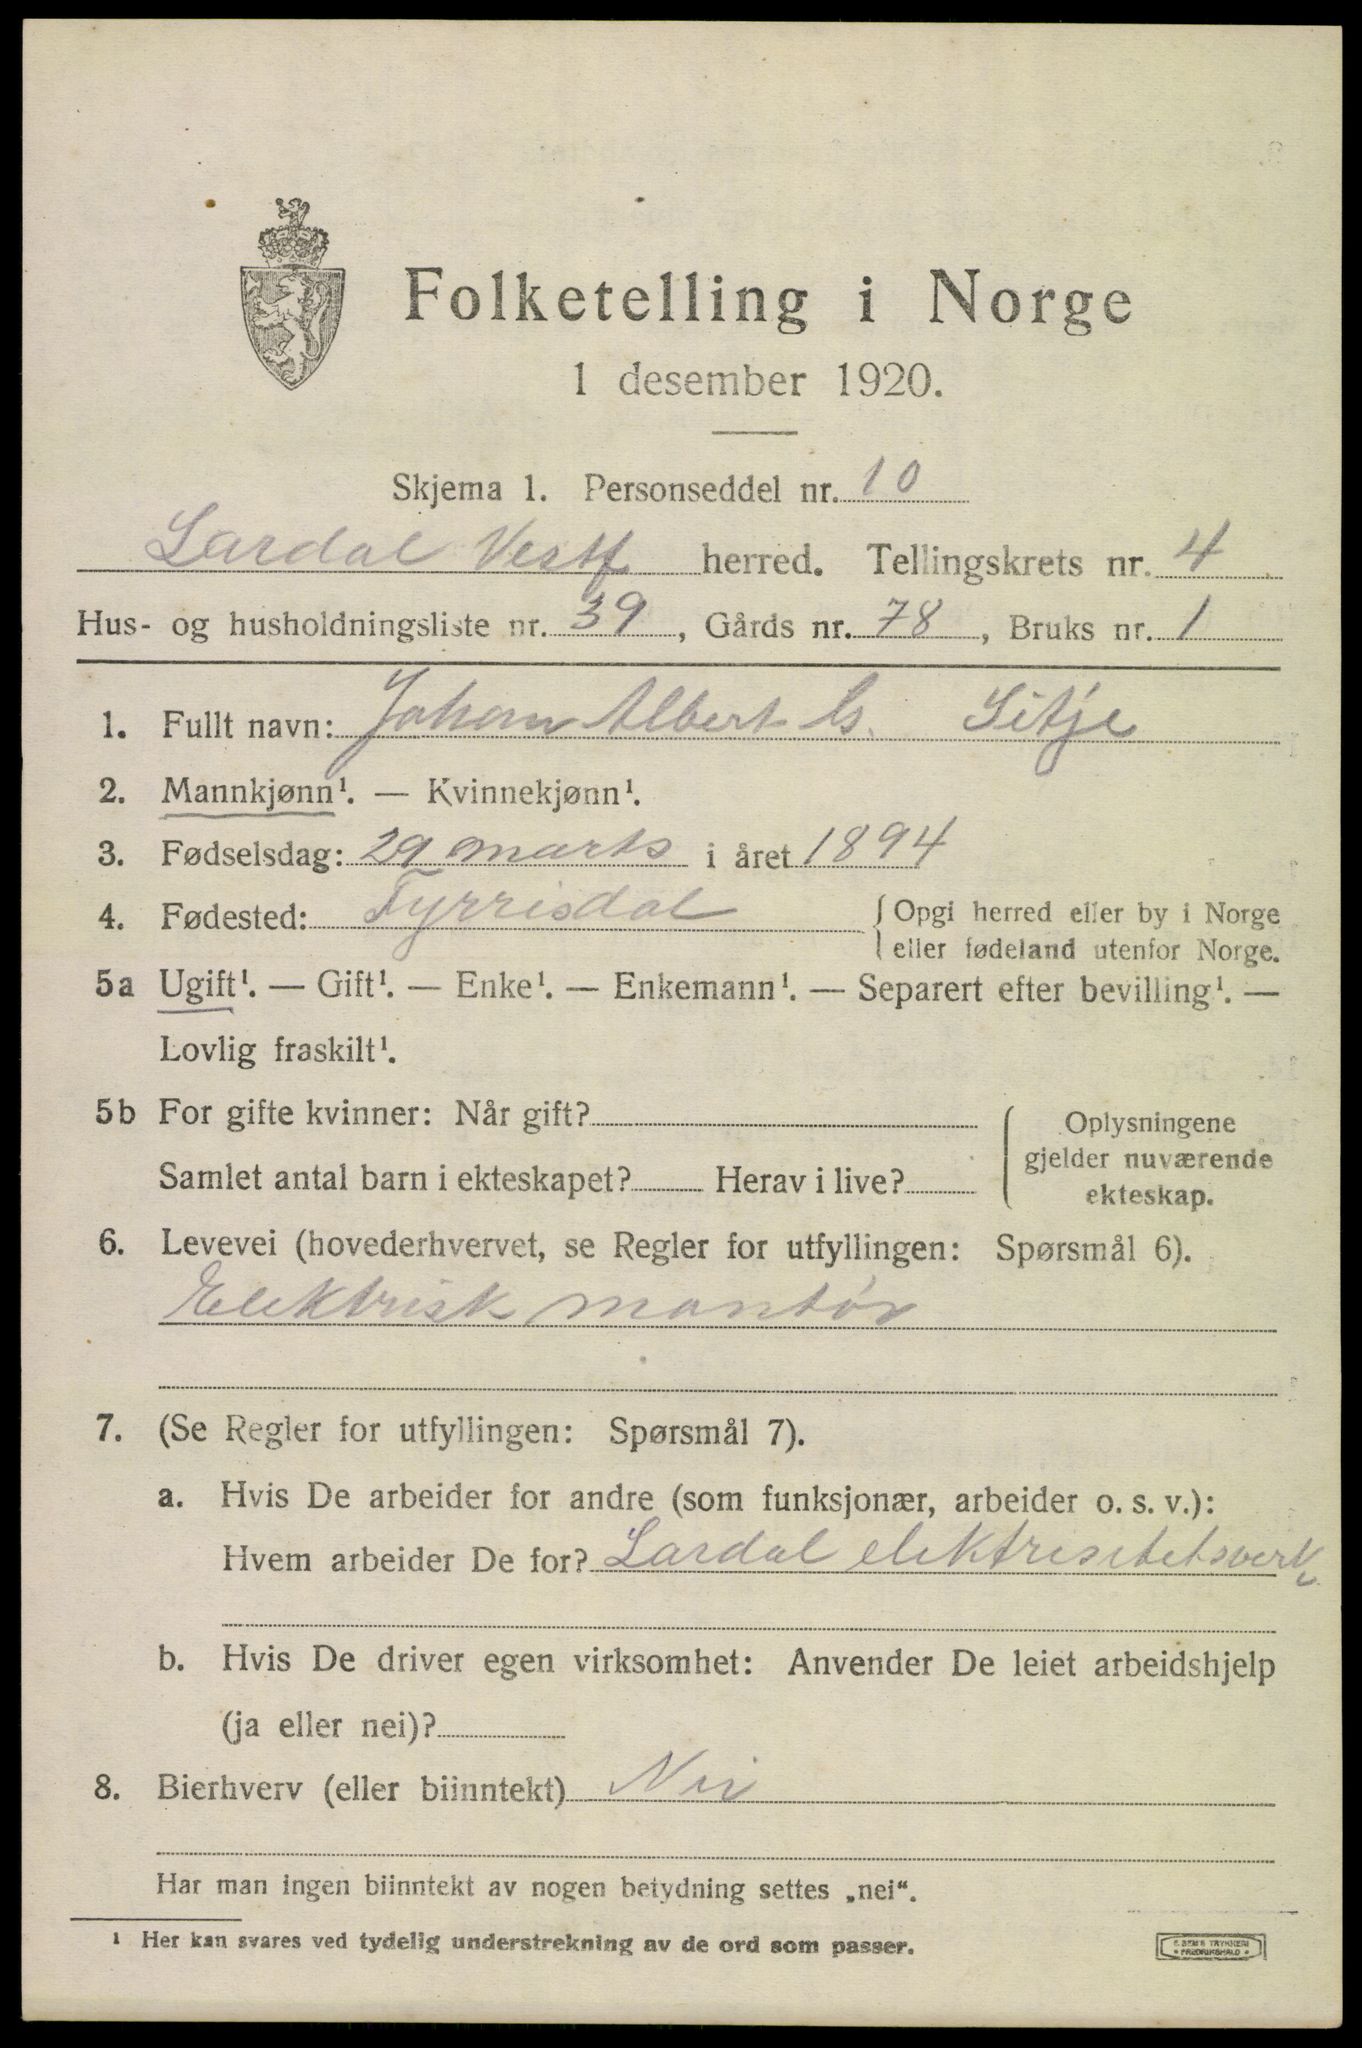 Folketelling i Norge
1 desember 1920.
Skjema 1. Personseddel nr. 10
Lardal Vestf herred. Tellingskrets nr. 4
Hus- og husholdningsliste nr. 39, Gårds nr. 78, Bruks nr. 1
1. Fullt navn: Johan Albert G. Sitje
2. Mannkjønn¹. — Kvinnekjønn¹.
3. Fødselsdag: 29 marts i året 1894
4. Fødested: Fyrrisdal {Opgi herred eller by i Norge
eller fødeland utenfor Norge.
5a Ugift¹. — Gift¹. — Enke¹. — Enkemann¹. — Separert efter bevilling¹. —
Lovlig fraskilt¹.
5b For gifte kvinner: Når gift?
Samlet antal barn i ekteskapet? Herav i live?
{Oplysningene
gjelder nuværende
ekteskap.
6. Levevei (hovederhvervet, se Regler for utfyllingen: Spørsmål 6).
Elektrisk montør
7. (Se Regler for utfyllingen: Spørsmål 7).
a. Hvis De arbeider for andre (som funksjonær, arbeider o. s. v.):
Hvem arbeider De for? Lardal elektresitetsverk
b. Hvis De driver egen virksomhet: Anvender De leiet arbeidshjelp
(ja eller nei)?
8. Bierhverv (eller biinntekt) Nei
Har man ingen biinntekt av nogen betydning settes „nei“.
¹ Her kan svares ved tydelig understrekning av de ord som passer.
E. SEM'S TRYKKERI
• FREDRIKSHALD •